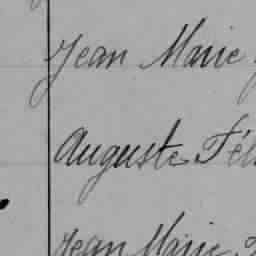 Jean Marie
Auguste Fél
Jean Marie